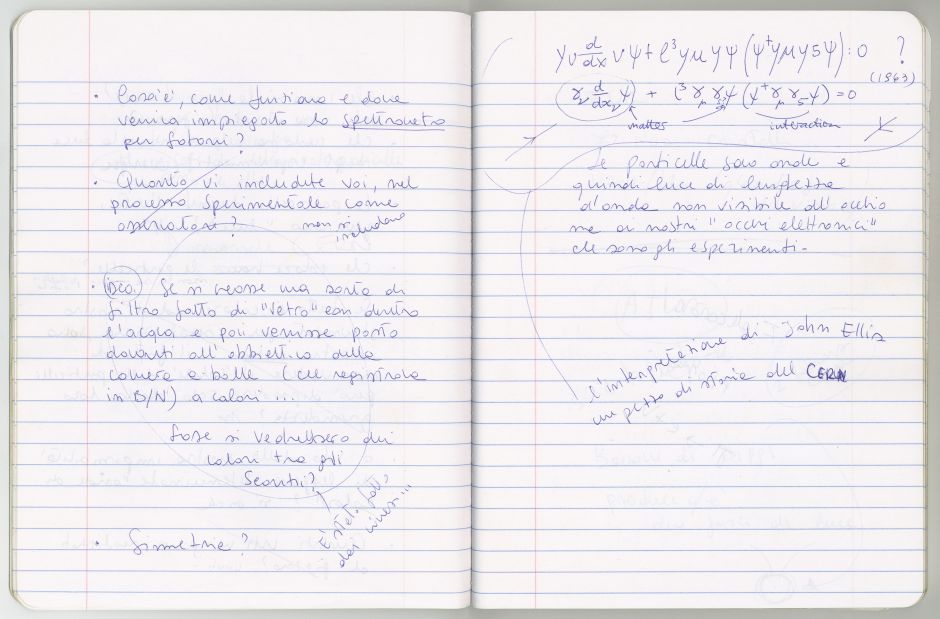 • Cos'è, come funziona e dove
veniva impiegato lo spettrometro
per fotoni?
• Quanto vi includete voi, nel
processo sperimentale come
osservatori?
non si
includono
• IDEA. Se si creasse una sorta di
filtro fatto di "vetro" con dentro
l'acqua e poi venisse posto
davanti all'obbiettivo della
camera a bolle (che registrava
in B/N) a colori ...
forse si vedrebbero dei
colori tra gli
Scontri?
È stato fatto
dai cinesi...
• Simmetrie?
γν d/dx ν ψ + l³ γμ γψ (ψ†γμ γ5 ψ) : 0 ?
(1963)
γν d/dxν ψ) + l³ γμ γ5 ψ (ψ† γμ γ5 ψ) = 0
matter
interaction
Le particelle sono onde e
quindi luce di lunghezza
d'onda non visibile all'occhio
ma ai nostri "occhi elettronici"
che sono gli esperimenti.
l'interpretazione di John Ellis
un pezzo di storia del CERN